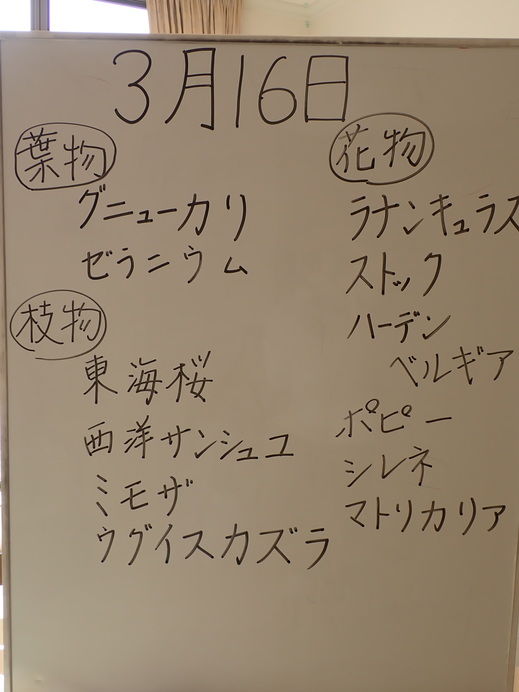 3月16日
葉物
グニューカリ
ゼラニウム
枝物
東海桜
西洋サンシュユ
ミモザ
ウグイスカズラ
花物
ラナンキュラス
ストック
ハーデン
ベルギア
ポピー
シレネ
マトリカリア